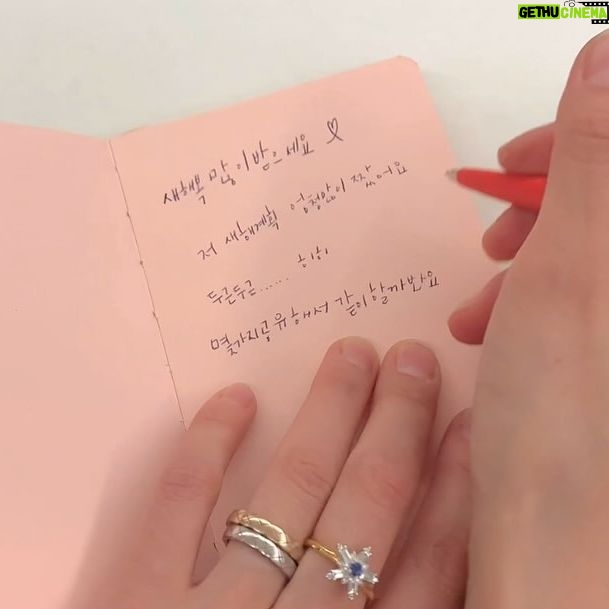 GETHU CINEMA
새해복 많이받으세요 ♡
저 새해계획 엄청많이 짰어요
두근두근...... 히히
몇가지공유해서 같이할까봐요